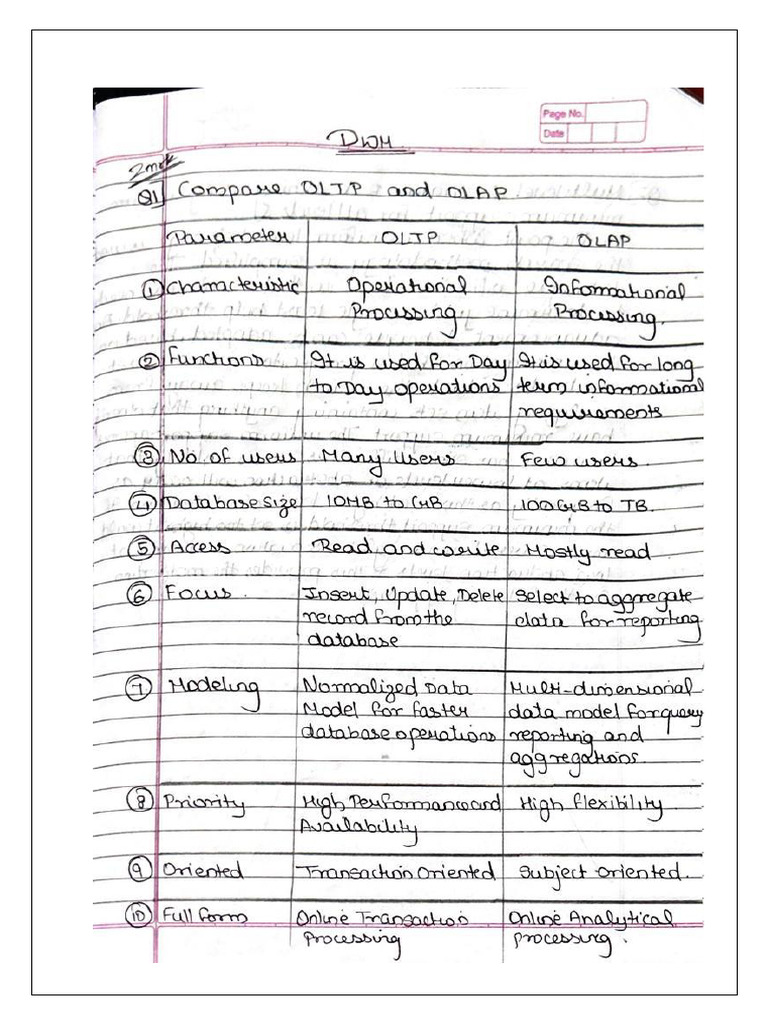 Page No.
Date
DWM
2mrk
Q1 Compare OLTP and OLAP.
Parameter OLTP OLAP
① Characteristic Operational Informational
Processing Processing.
② Functions It is used for Day It is used for long
to Day operations term informational
requirements
③ No. of users Many Users Few users.
④ Database Size 10MB to GB 100GB to TB.
⑤ Access Read and write Mostly read
⑥ Focus. Insert, Update, Delete Select to aggregate
record from the data for reporting
database
⑦ Modeling Normalized Data Multi-dimensional
Model for faster data model for query
database operations reporting and
aggregations.
⑧ Priority High Performance and High flexibility.
Availability
⑨ Oriented Transaction Oriented Subject Oriented.
⑩ Full form Online Transaction Online Analytical
Processing Processing.